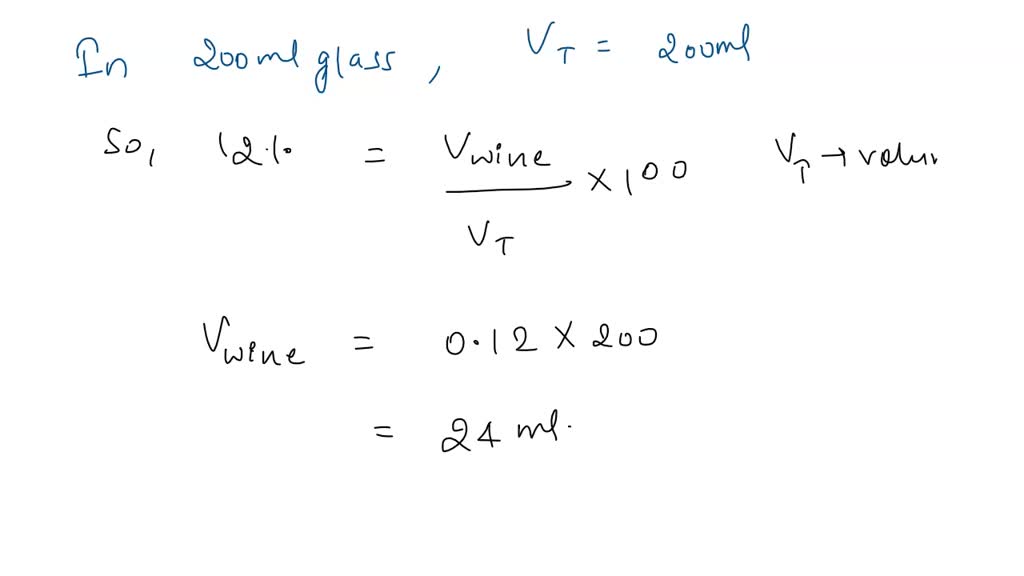 In 200ml glass, V_T = 200ml
So, 12% = V_wine / V_T × 100 V_T → volum
V_wine = 0.12 × 200
= 24 ml.